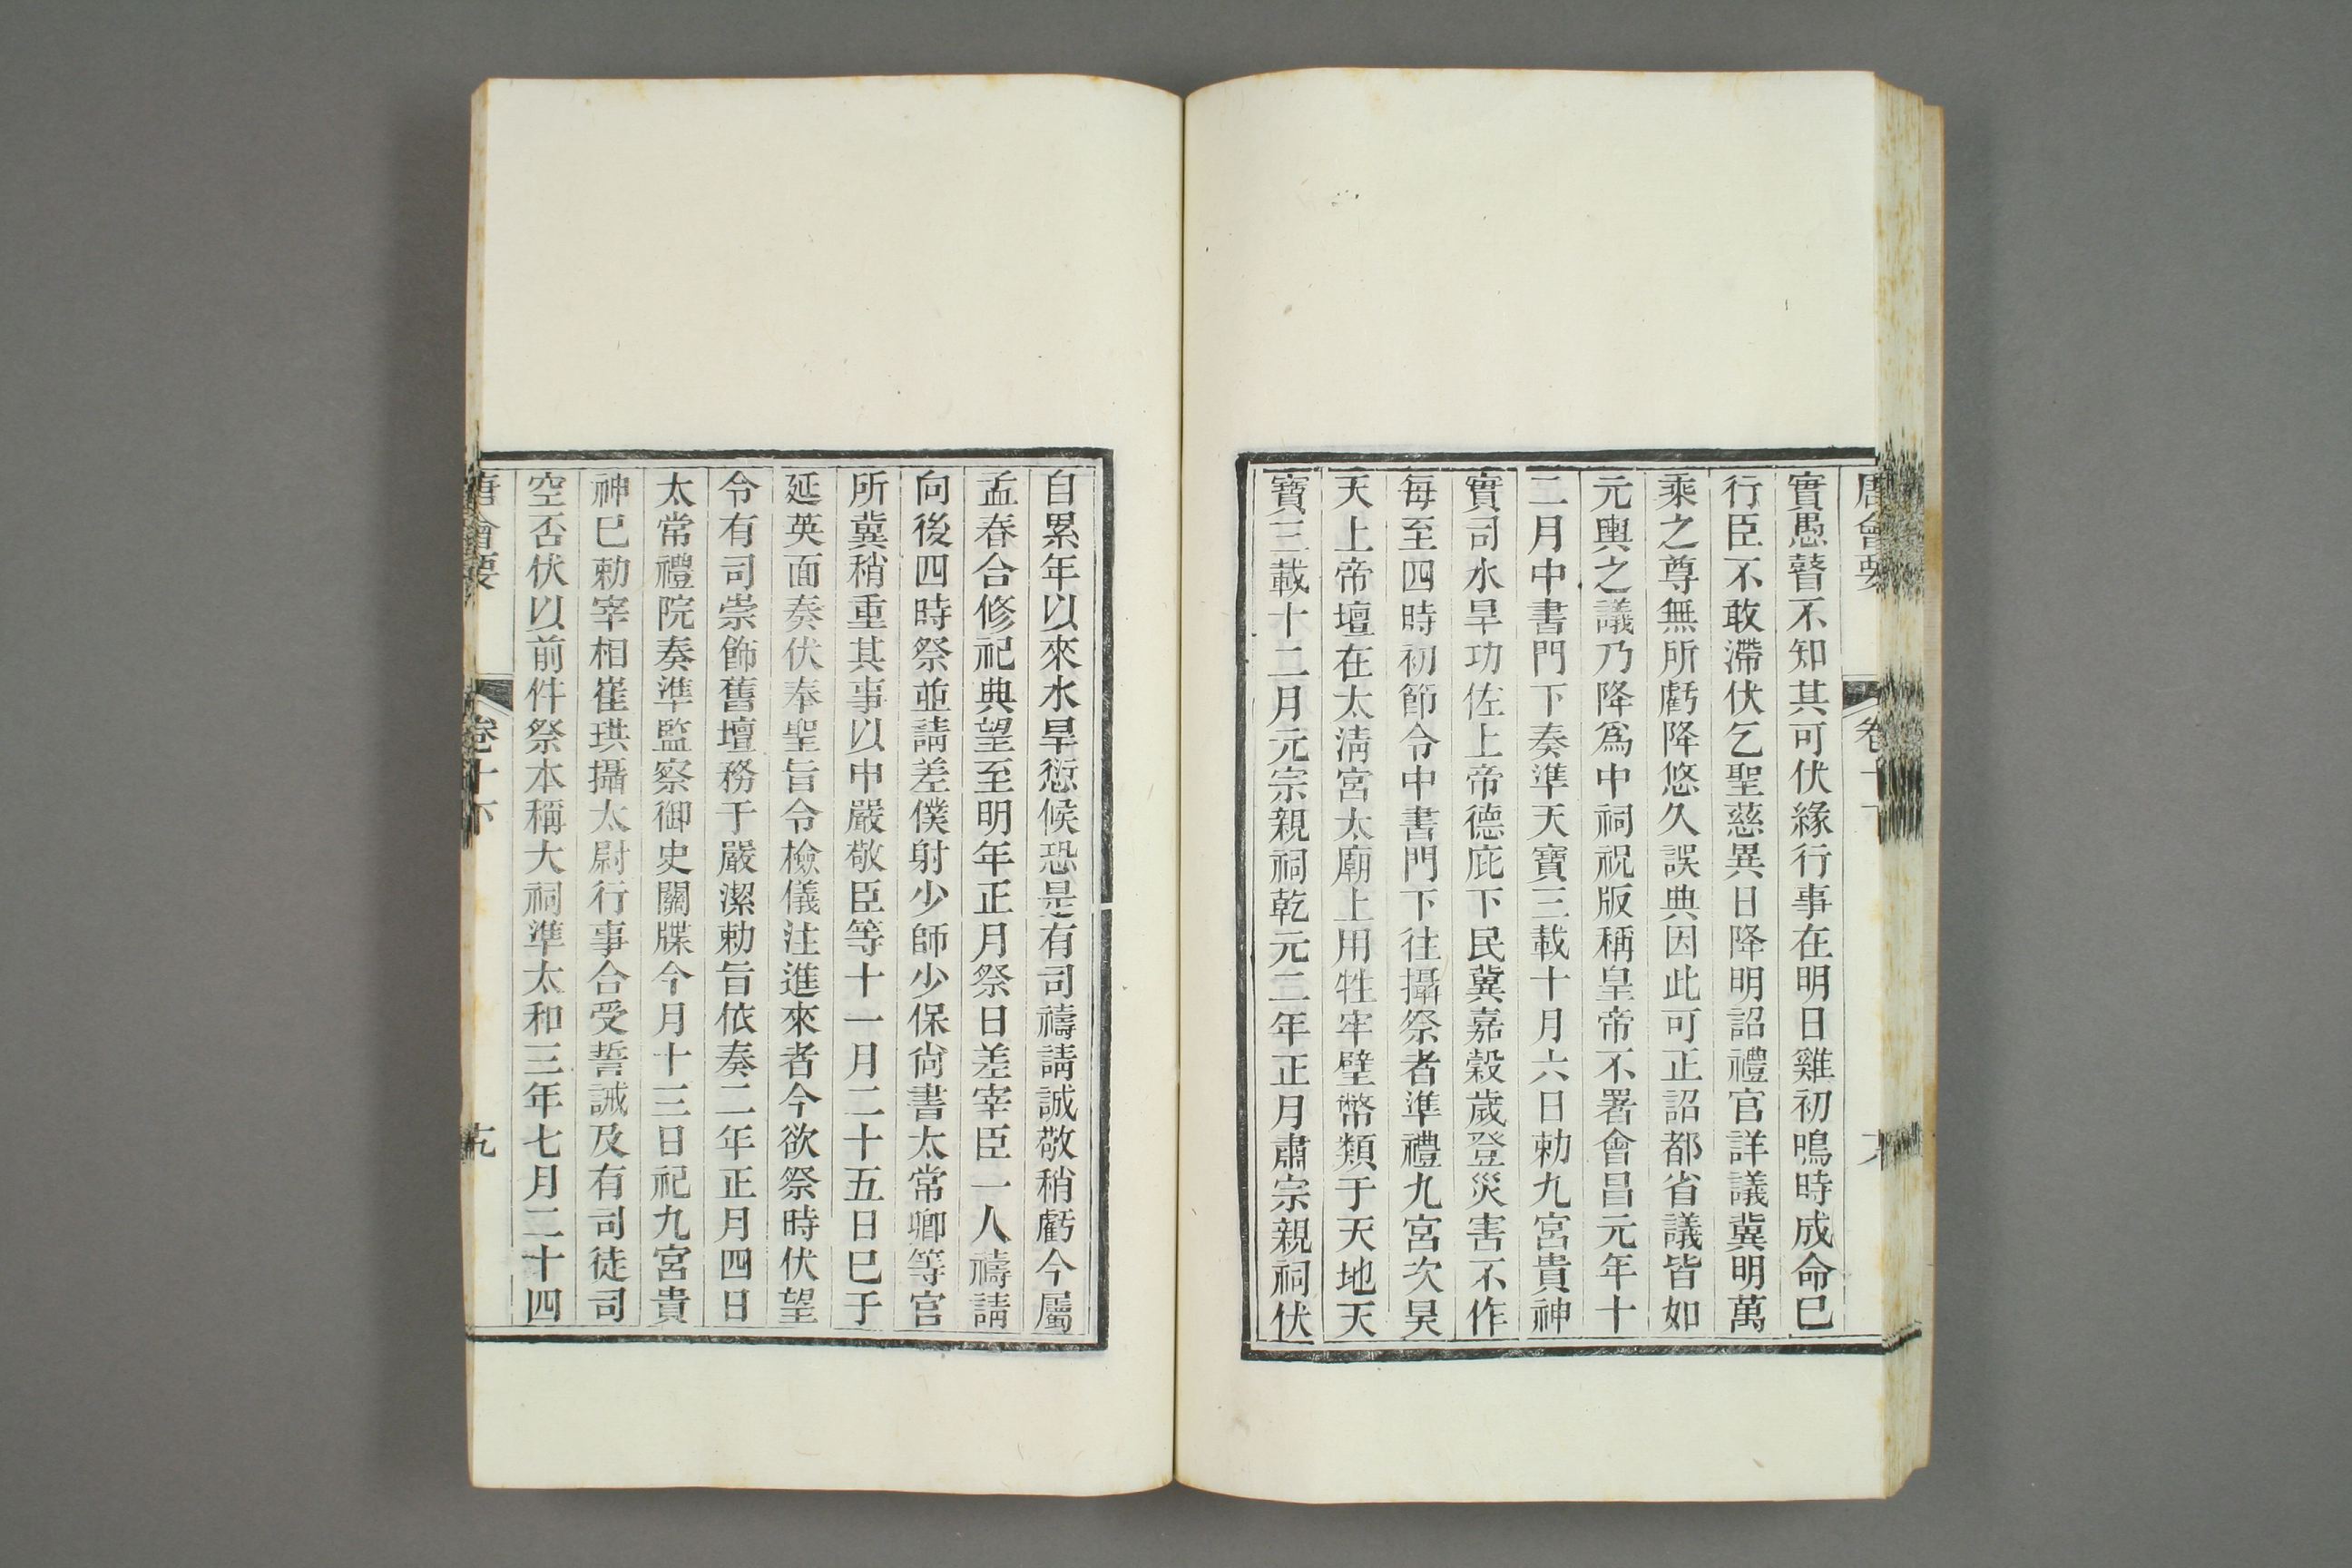 唐會要 卷十下
實愚瞽不知其可伏緣行事在明日雞初鳴時成命已
行臣不敢滯伏乞聖慈異日降明詔禮官詳議冀明萬
乘之尊無所虧降悠久誤典因此可正詔都省議皆如
元輿之議乃降爲中祠祝版稱皇帝不署會昌元年十
二月中書門下奏準天寶三載十月六日勅九宮貴神
實司水旱功佐上帝德庇下民冀嘉穀歲登災害不作
每至四時初節令中書門下往攝祭者準禮九宮次昊
天上帝壇在太淸宮太廟上用牲牢璧幣類于天地天
寶三載十二月元宗親祠乾元二年正月肅宗親祠伏
自累年以來水旱愆候恐是有司禱請誠敬稍虧今屬
孟春合修祀典望至明年正月祭日差宰臣一人禱請
向後四時祭並請差僕射少師少保尙書太常卿等官
所冀稍重其事以申嚴敬臣等十一月二十五日已于
延英面奏伏奉聖旨令檢儀注進來者今欲祭時伏望
令有司崇飾舊壇務于嚴潔勅旨依奏二年正月四日
太常禮院奏準監察御史關牒今月十三日祀九宮貴
神已勅宰相崔珙攝太尉行事合受誓誡及有司徒司
空否伏以前件祭本稱大祠準太和三年七月二十四
唐會要 卷十下